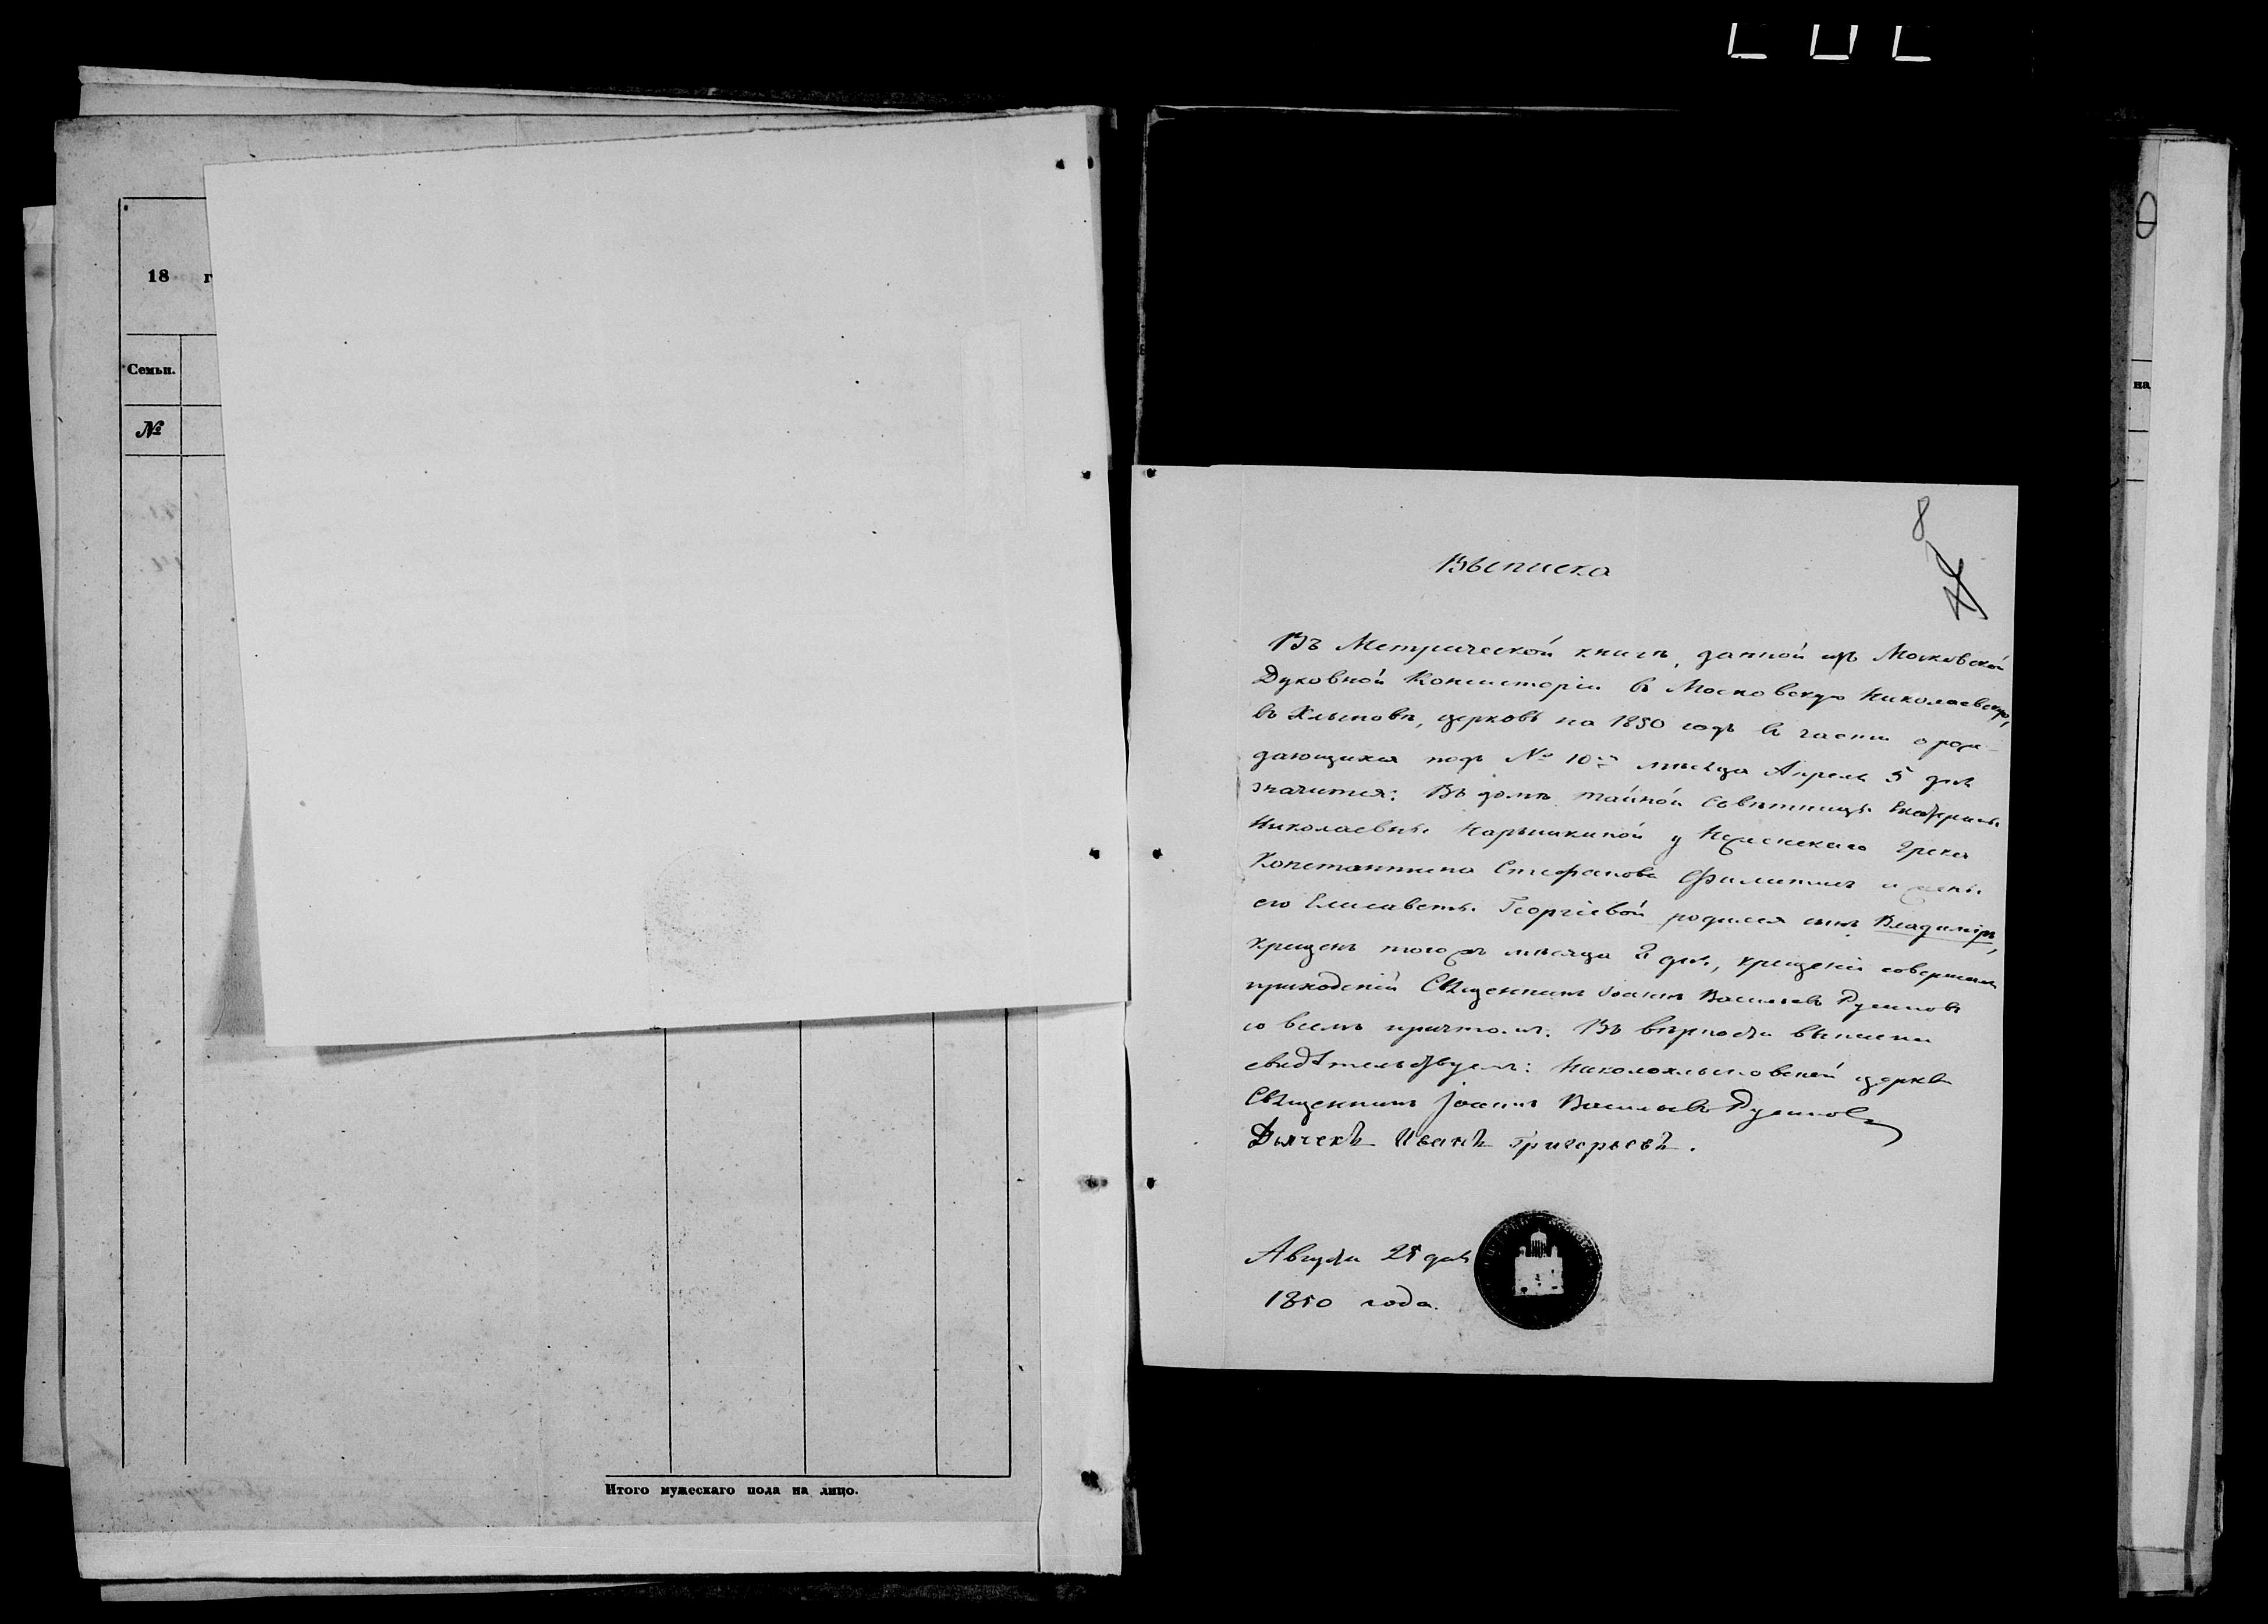 18 г
Семьи.
№
Итого мужескаго пола на лицо.
8
Выписка
Въ Метрической книгѣ, данной изъ Московской
Духовной Консисторіи въ Московскую Николаевскую,
въ Хлыновѣ, церковь на 1850 годъ въ части о рож-
дающихся подъ № 10 мѣсяца Апрѣля 5 дня
значится: Въ домѣ тайной совѣтницы Екатерины
Николаевны Нарышкиной у Нѣженскаго Грека
Константина Стефанова и жены
его Елисаветы Георгіевой родился сынъ Владиміръ,
крещенъ тогожъ мѣсяца дня, крещеніе совершалъ
приходскій Священникъ Іоаннъ Васильевъ Русиновъ
со всемъ причтомъ. Въ вѣрности выписки
свидѣтельствуемъ: Николохлыновской церкви
Священникъ Іоаннъ Васильевъ Русиновъ
Дьячекъ Иванъ Григорьевъ.
Августа 25 дня
1850 года.
на